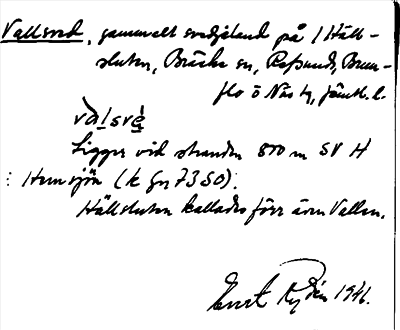 Vallsved, gammalt svedjeland på 1 Häll-
sluten, Bräcke sn, Refsunds, Brun-
flo o Näs tg, Jämtl. l.
valsve
Ligger vid stranden 800 m SV H
i Hemsjön (k fr 7350).
Hällsluten kallades förr även Vallen.
Evert Rydén 1946.